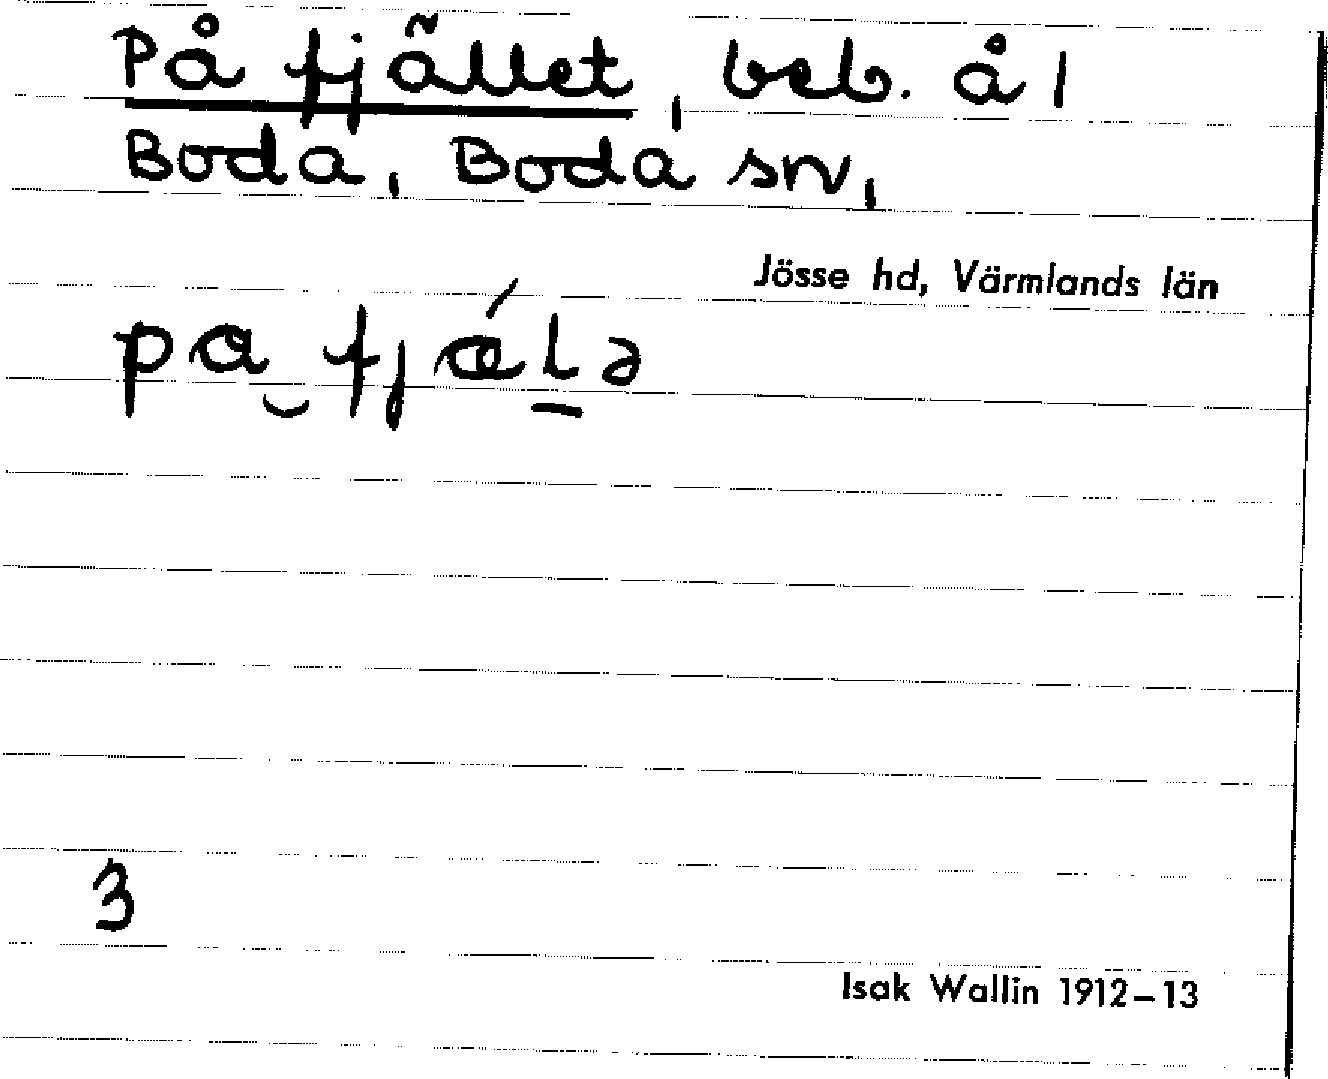 På fjället, beb. å 1
Boda, Boda sn,
Jösse hd, Värmlands län
pa̮ fjǽl̲ə
3
Isak Wallin 1912–13